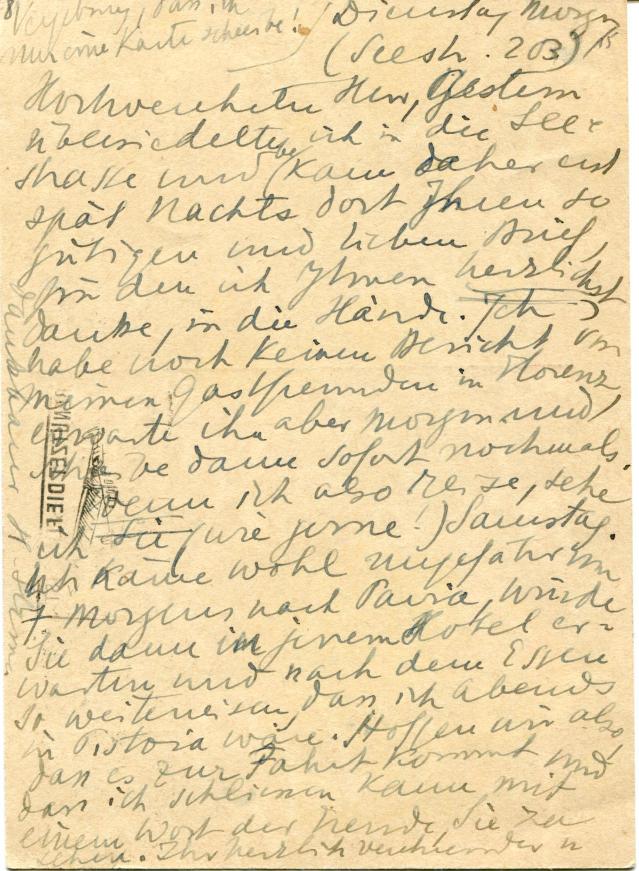 Vergebung, dass ich
nur eine Karte schreibe!
Dienstag Morgen
(Seestr. 203)
Hochverehrter Herr, Gestern
übersiedelte ich in die See-
strasse und bekam daher erst
spät Nachts dort Ihren so
gütigen und lieben Brief,
für den ich Ihnen herzlichst
danke, in die Hände. Ich
habe noch keinen Bericht von
meinen Gastfreunden in Florenz,
erwarte ihn aber morgen und
schreibe dann sofort nochmals.
Wenn ich also reise, sehe
ich Sie (wie gerne!) Samstag.
Ich käme wohl ungefähr um
7 Morgens nach Pavia, würde
Sie dann in jenem Hotel er-
warten und nach dem Essen
so weiterreisen, dass ich abends
in Pistoia wäre. Hoffen wir also,
dass es zur Fahrt kommt und
dass ich schliessen kann mit
einem Wort der Freude, Sie zu
sehen. Ihr herzlich verehrender